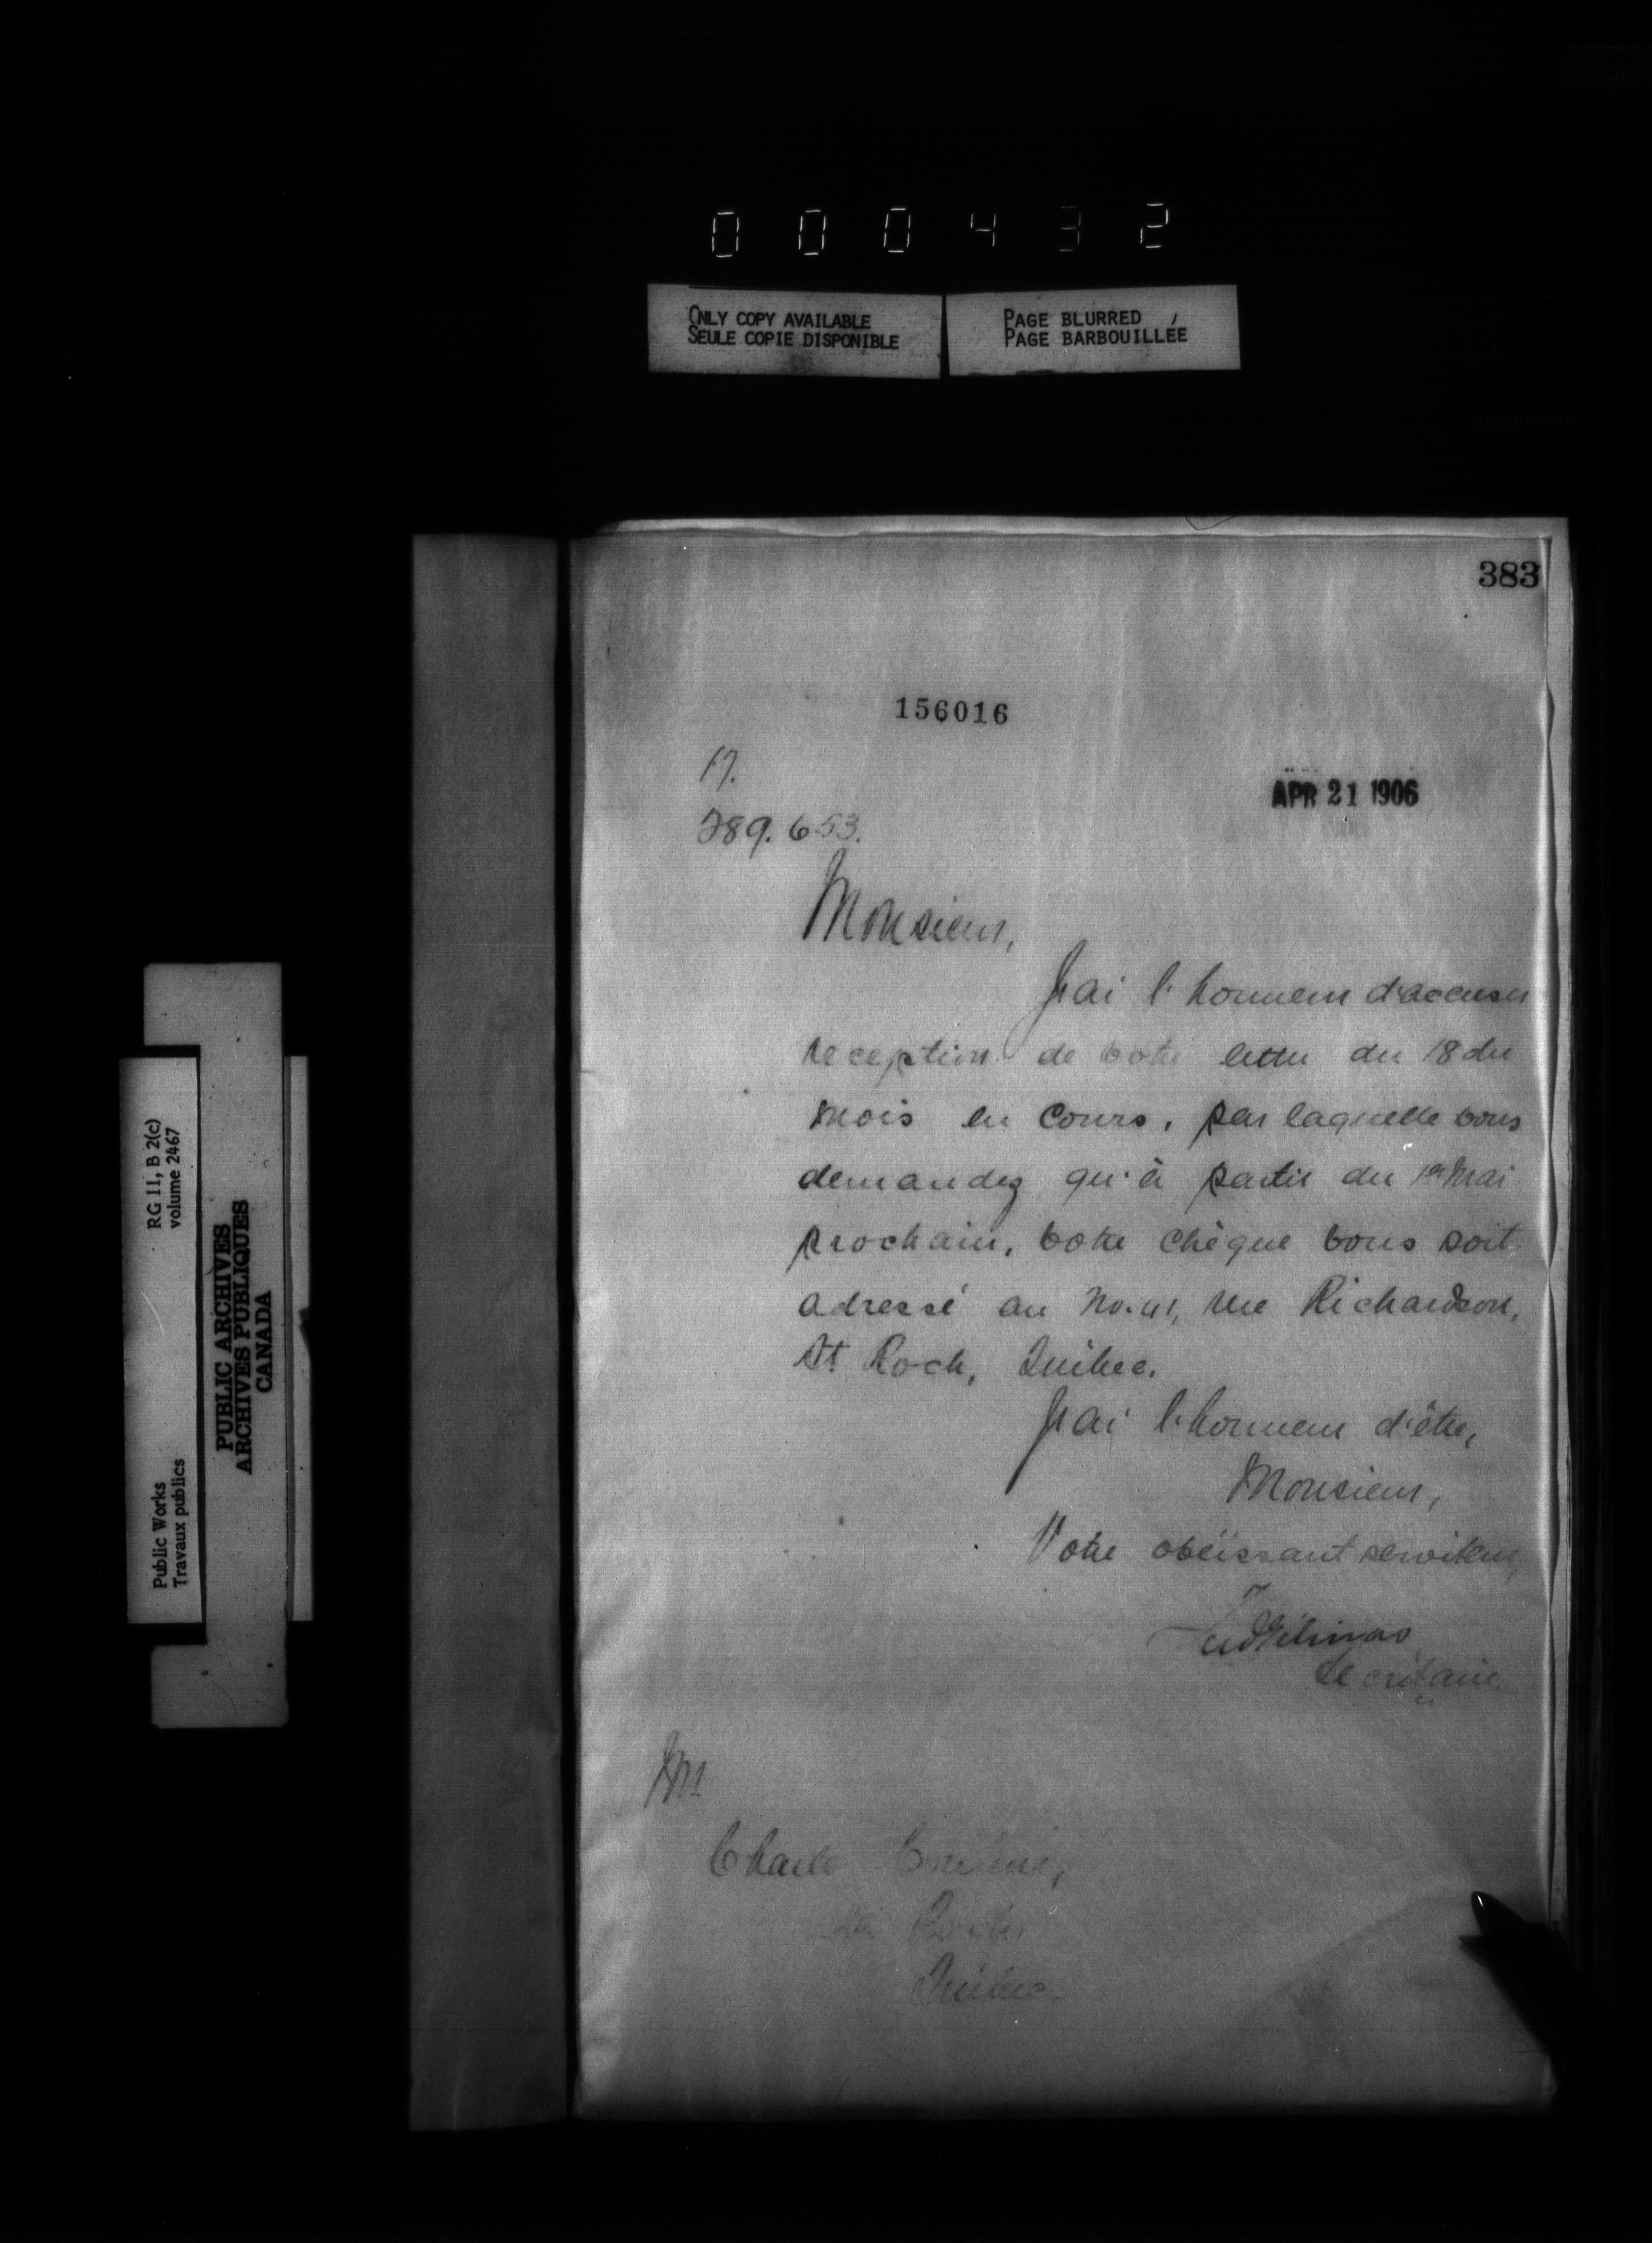 0 0 0 4 3 2
ONLY COPY AVAILABLE
SEULE COPIE DISPONIBLE
PAGE BLURRED
PAGE BARBOUILLÉE
383
156016
17.
289.653.
APR 21 1906
Monsieur,
J'ai l'honneur d'accuser
reception de votre lettre du 18 du
mois en cours, par laquelle vous
demandez qu'à partir du 1er Mai
prochain, votre chèque vous soit
adressé au No. 41, rue Richardson,
St Roch, Québec.
J'ai l'honneur d'être,
Monsieur,
Votre obéissant serviteur,
Fred Gélinas
Secrétaire.
Mr
Charles
St Roch,
Québec.
Public Works
Travaux publics
RG 11, B 2(c)
volume 2467
PUBLIC ARCHIVES
ARCHIVES PUBLIQUES
CANADA